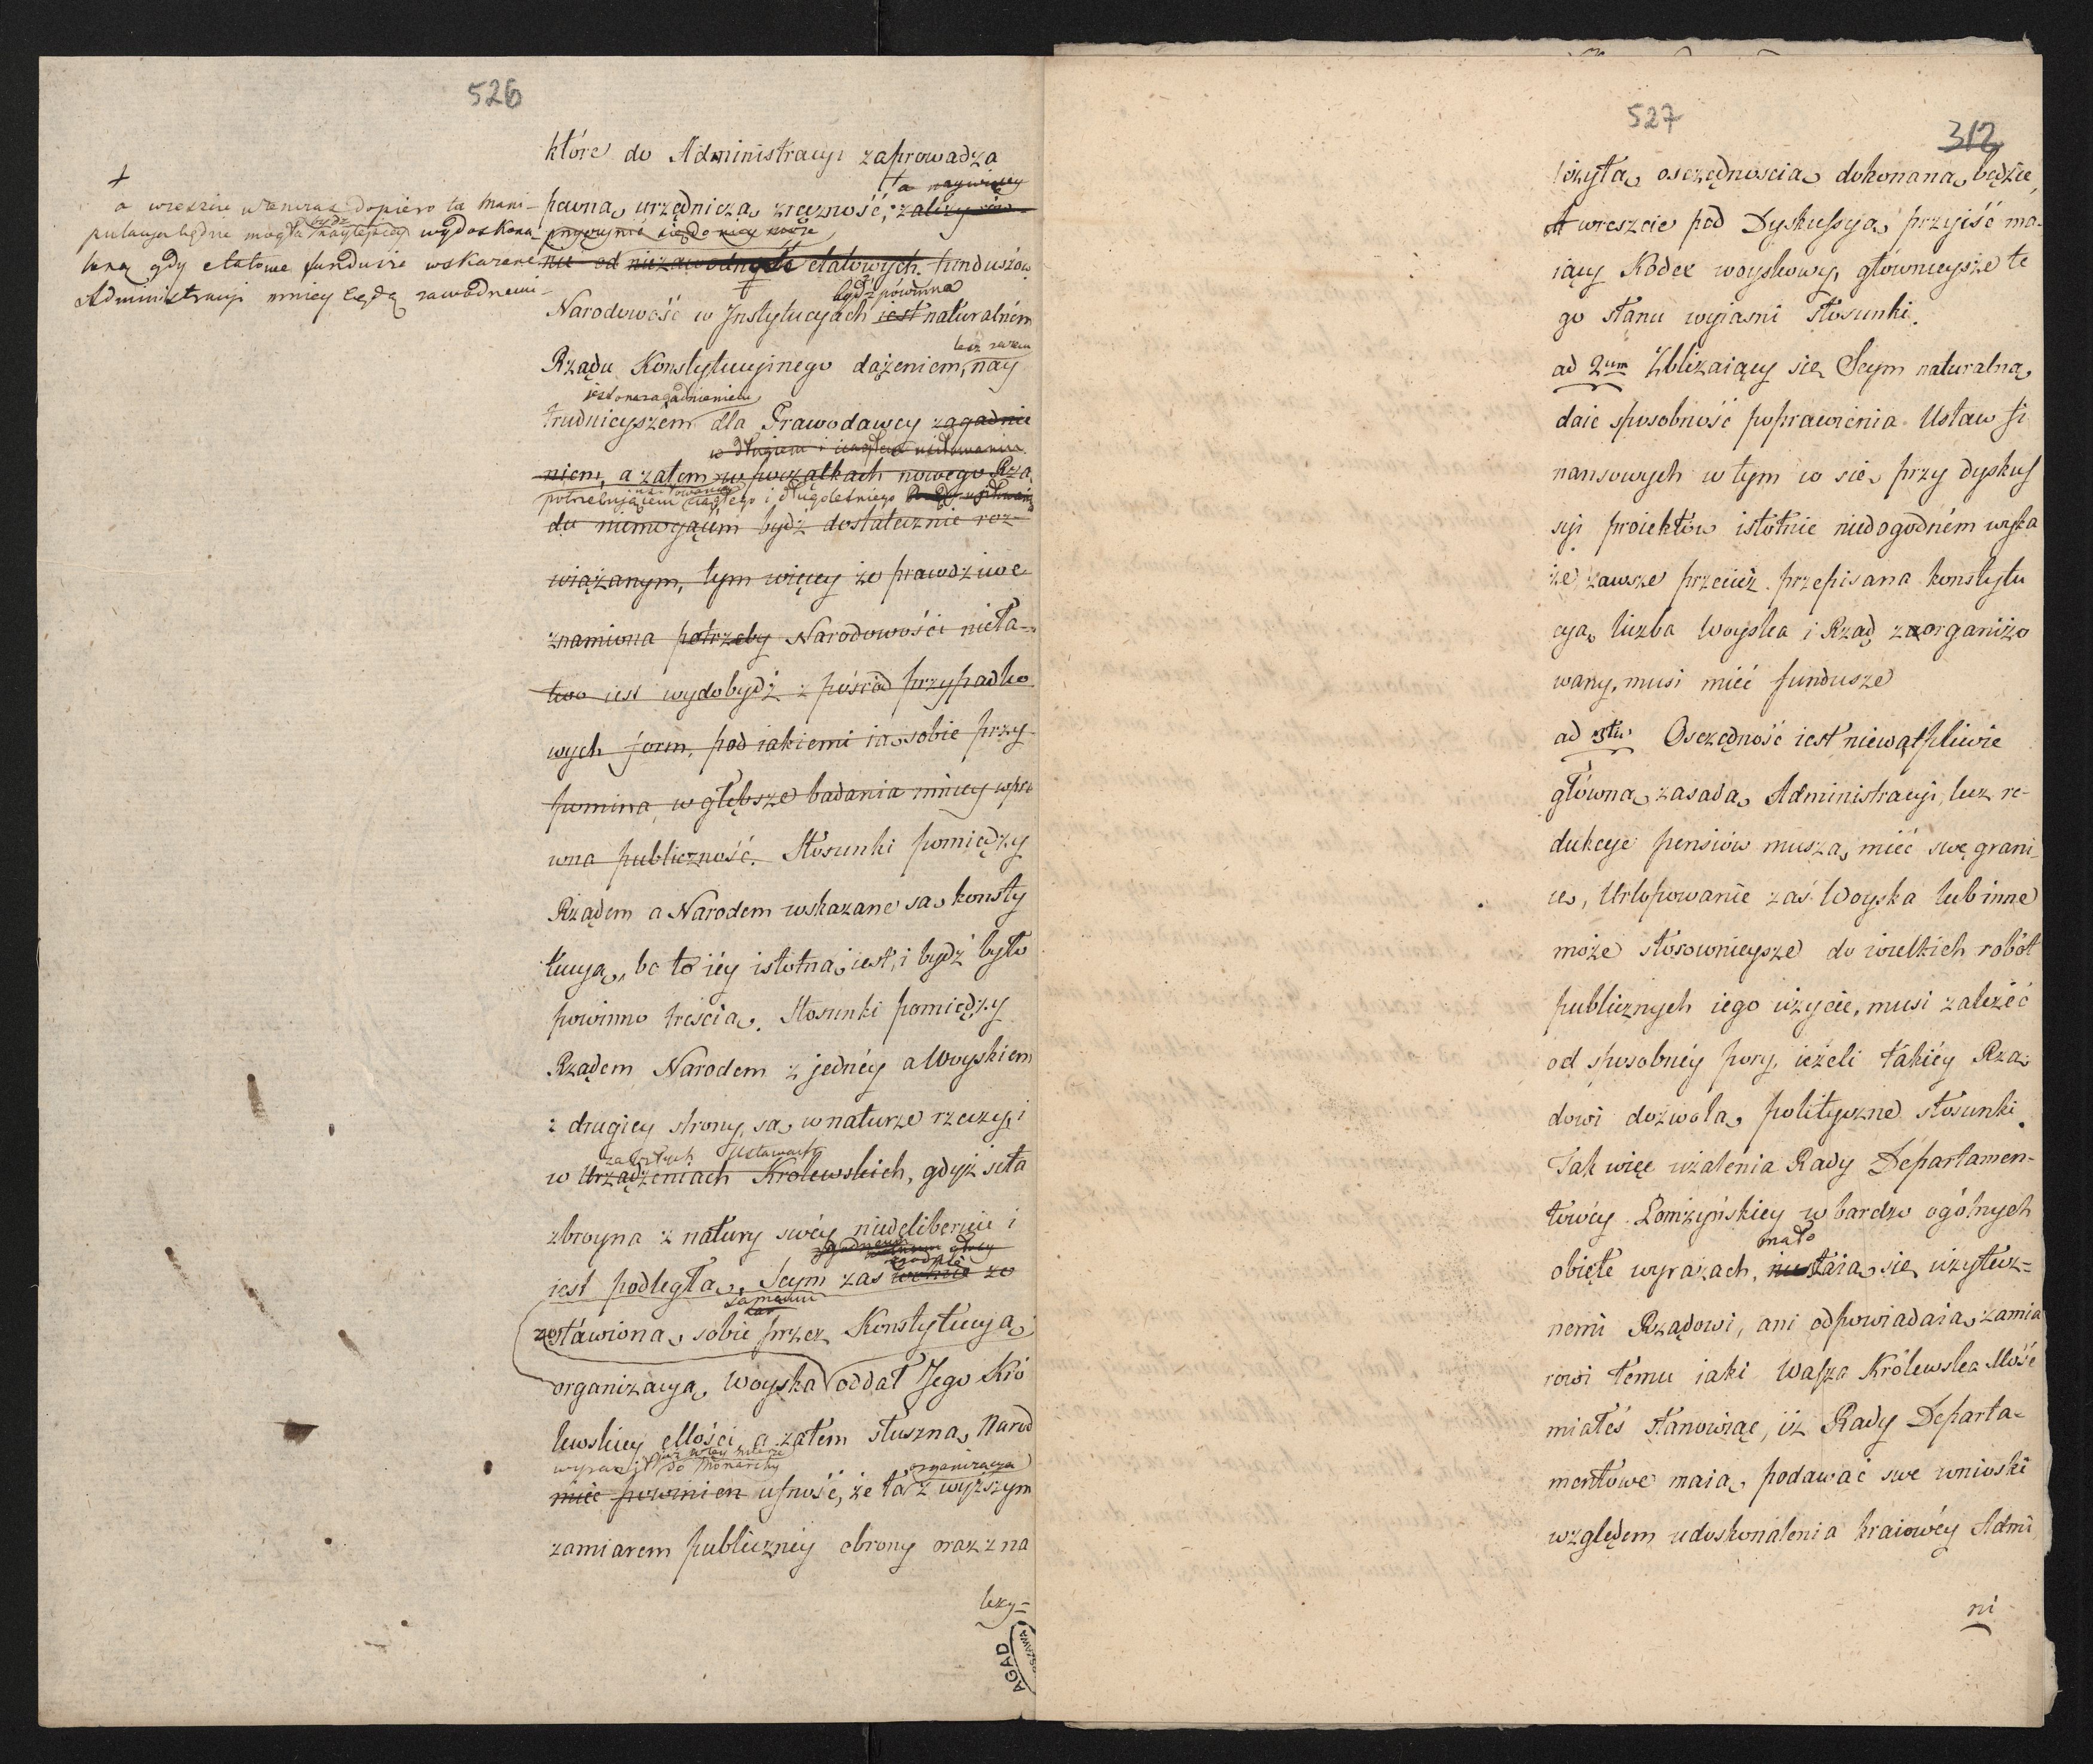 526
które do Administracyi zaprowadza
ta naywięcey
pewną urzędniczą zręczność, zależy rów-
nie od niezawodnych etatowych funduszów
+
a wreszcie wtenczas dopiero ta mani-
pulacya będzie mogła bydź naylepiey wydoskona-
loną gdy etatowe fundusze wskazane
Administracyi mniey będą zawodnemi
bydź powinna
Narodowość w Instytucyach iest naturalném
lecz razem
Rządu Konstytucyinego dążeniem, nay
iest one zagadnieniem
trudnieyszém dla Prawodawcy zagadnie
w długiem i ciągłem usiłowaniu
niem, a zatem w początkach nowego Rzą
potrzebuiącem ciągłego i długoletniego
du niemogącém bydź dostatecznie roz-
wiązanym, tym więcey że prawdziwe
znamiona potrzeby Narodowości nieła-
two iest wydobydź z pośród przypadko
wych form, pod iakiemi ią sobie przy-
pomina, w głębsze badania mniey wpra
wna publiczność. Stosunki pomiędzy
Rządem a Narodem wskazane są konsty
tucyą, bo to iéy istotną iest, i bydź było
powinno treścią. Stosunki pomiędzy
Rządem Narodem z jednéy a Woyskiem
z drugiey strony, są w naturze rzeczy, i
zawiłych Ustawach
w Urządzeniach Królewskich, gdyż siła
zbroyna z natury swéy niedeliberuie i
iest podległą, Seym zaś
samemu
zostawioną sobie przez Konstytucyą
organizacyą Woyska oddał Jego Kró
lewskiey Mości a zatem słuszną Naród
do Monarchy
organizacya
mieć powinien ufność, że ta z wyższym
zamiarem publiczney obrony oraz z na
leży=
AGAD
527
312
leżytą oszczędnością dokonaną będzie,
A wreszcie pod Dyskussyą przyiść ma-
iący Kodex woyskowy, głównieysze te
go stanu wyiaśni stosunki.
ad 2um Zbliżaiący się Seym naturalną
daie sposobność poprawienia Ustaw fi
nansowych w tym co się przy dyskus
syi proiektów istotnie niedogodném wyka
że, zawsze przecież przepisana konstytu
cyą liczba Woyska i Rząd zorganizo
wany, musi mieć fundusze
ad 3tiu Oszczędność iest niewątpliwie
główną zasadą Administracyi, lecz re-
dukcye pensiów muszą mieć swe grani-
ce, Urlopowanie zaś Woyska lub inne
może stosownieysze do wielkich robót
publicznych iego użycie, musi zależeć
od sposobnéy pory, ieżeli takiéy Rzą
dowi dozwolą polityczne stosunki.
Tak więc użalenia Rady Departamen-
towéy Łomżyńskiey w bardzo ogólnych
mało
obięte wyrazach, nie staią się użytecz=
nemi Rządowi, ani odpowiadaią zamia
rowi temu iaki Wasza Królewska Mość
miałeś stanowiąc, iż Rady Departa-
mentowe maią podawać swe wnioski
względem udoskonalenia kraiowéy Admi
ni